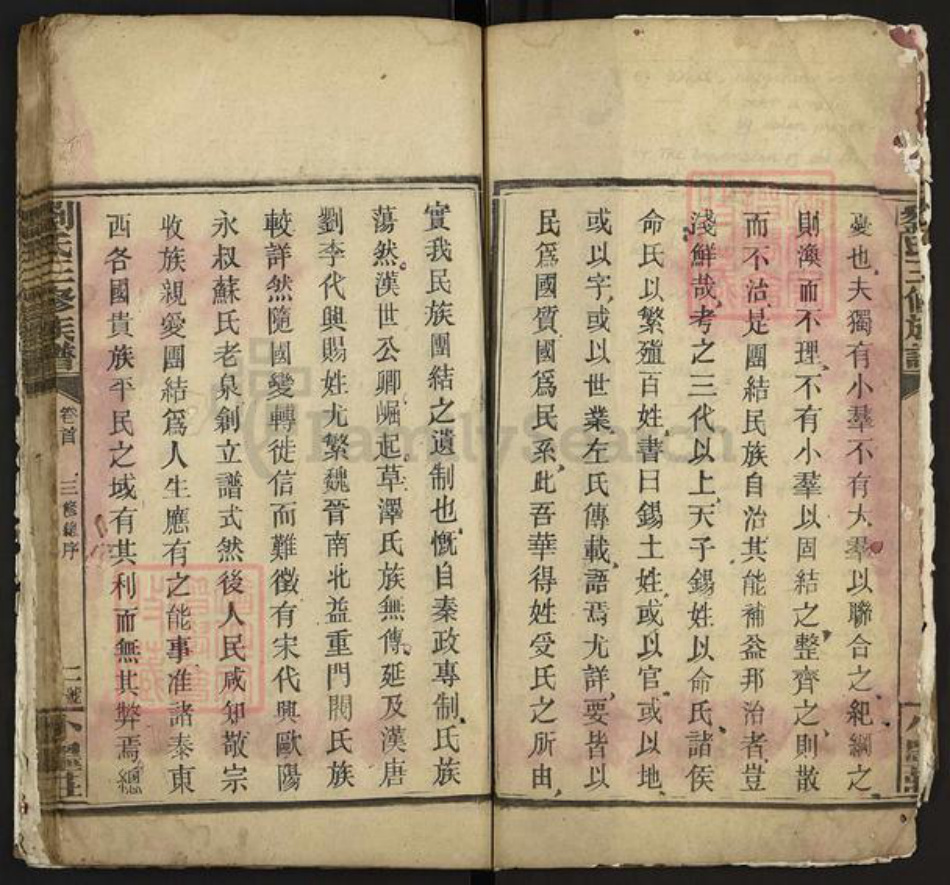 憂也夫獨有小羣不有大羣以聯合之紀綱之
則渙而不理不有小羣以固結之整齊之則散
而不治是團結民族自治其能補益邦治者豈
淺鮮哉考之三代以上天子錫姓以命氏諸侯
命氏以繁殖百姓書曰錫土姓或以官或以地
或以字或以世業左氏傳載語焉尤詳要皆以
民爲國質國爲民系此吾華得姓受氏之所由
實我民族團結之遺制也慨自秦政專制氏族
蕩然漢世公卿崛起草澤氏族無傳延及漢唐
劉李代興賜姓尤繁魏晉南北益重門閥氏族
較詳然隨國變轉徙信而難徵有宋代興歐陽
永叔蘇氏老泉創立譜式然後人民咸知敬宗
收族親愛團結爲人生應有之能事准諸泰東
西各國貴族平民之域有其利而無其弊焉繩
劉氏三修族譜
卷首
三修總序
二號
FamilySearch